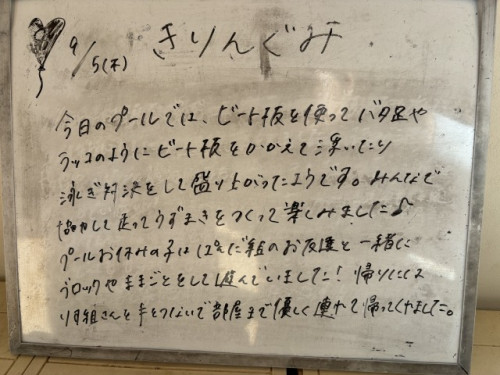 9/5(木) きりんぐみ
今日のプールでは、ビート板を使ってバタ足や
ラッコのようにビート板をかかえて浮いたり
泳ぎ対決をして盛り上がったようです。みんなで
協力して走ってうずまきをつくって楽しみました♪
プールお休みの子はぱんだ組のお友達と一緒に
ブロックやままごとをして遊んでいました！帰りには
りす組さんと手をつないで部屋まで優しく連れて帰ってくれました。